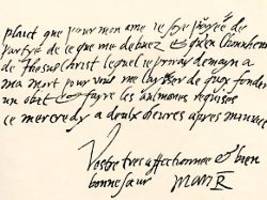 plaict que pour mon ame ie soye payée de
partye de ce que me debuez et qu'en l'honneur
de Jhesus Christ lequel ie priray demayn a
ma mort pour vous me laysser de quoy fonder
un obit et fayre les aulmosnes requises
ce mercredy a deulx heures apres minuit
Vostre tres affectionnee et bien
bonne sœur Mari R